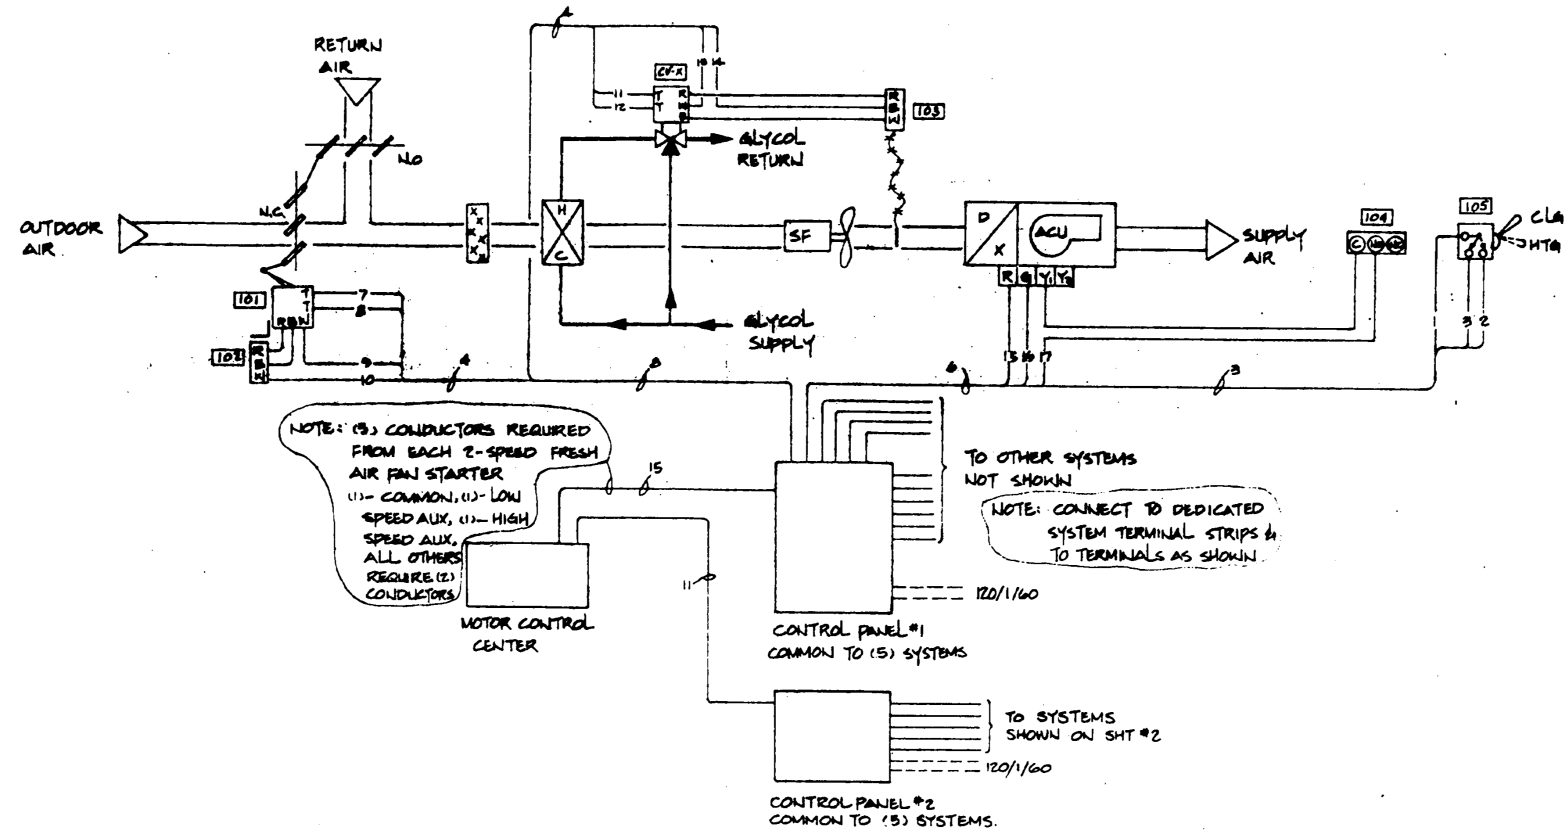 RETURN
AIR
N.O
N.C.
OUTDOOR
AIR
4
11
12
CV-X
T
T
R
13
14
R
B
W
103
GLYCOL
RETURN
H
C
SF
D
X
ACU
R G Y1 Y2
SUPPLY
AIR
104
C NO NC
105
CLG
HTG
3 2
101
T
T
R B W
7
8
9
10
102
R
B
4
8
GLYCOL
SUPPLY
15 16 17
6
3
NOTE: (3) CONDUCTORS REQUIRED
FROM EACH 2-SPEED FRESH
AIR FAN STARTER
(1)- COMMON, (1)- LOW
SPEED AUX, (1)- HIGH
SPEED AUX.
ALL OTHERS
REQUIRE (2)
CONDUCTORS
15
11
MOTOR CONTROL
CENTER
TO OTHER SYSTEMS
NOT SHOWN
NOTE: CONNECT TO DEDICATED
SYSTEM TERMINAL STRIPS &
TO TERMINALS AS SHOWN
120/1/60
CONTROL PANEL #1
COMMON TO (5) SYSTEMS
TO SYSTEMS
SHOWN ON SHT #2
120/1/60
CONTROL PANEL #2
COMMON TO (5) SYSTEMS.